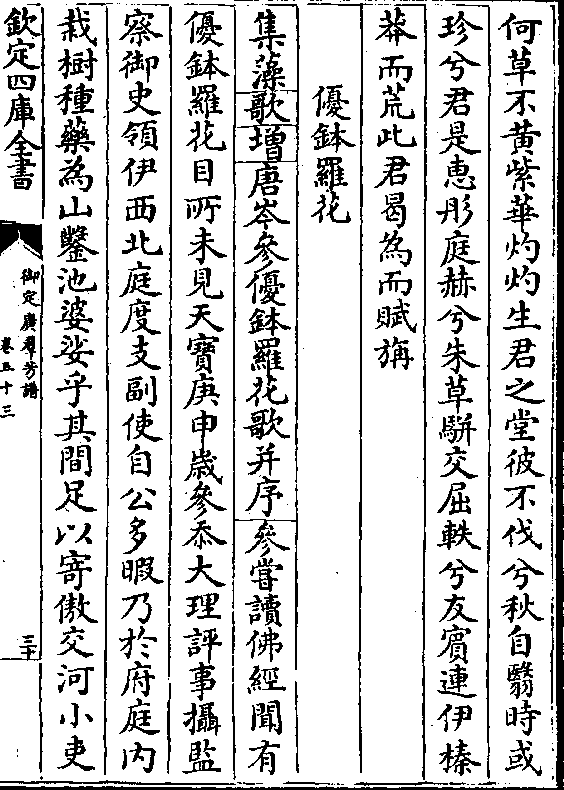 何草不黄紫華灼灼生君之堂彼不伐兮秋自翳時或
珍兮君是恵彤庭赫兮朱草駢交屈軼兮友賔連伊榛
莽而荒此君曷為而賦旃
優鉢羅花
集藻歌增唐岑參優鉢羅花歌并序參嘗讀佛經聞有
優鉢羅花目所未見天寳庚申嵗參忝大理評事攝監
察御史領伊西北庭度支副使自公多暇乃於府庭内
栽樹種藥為山鑿池婆娑乎其間足以寄傲交河小吏
欽定四庫全書
御定廣羣芳譜
卷五十三
三十